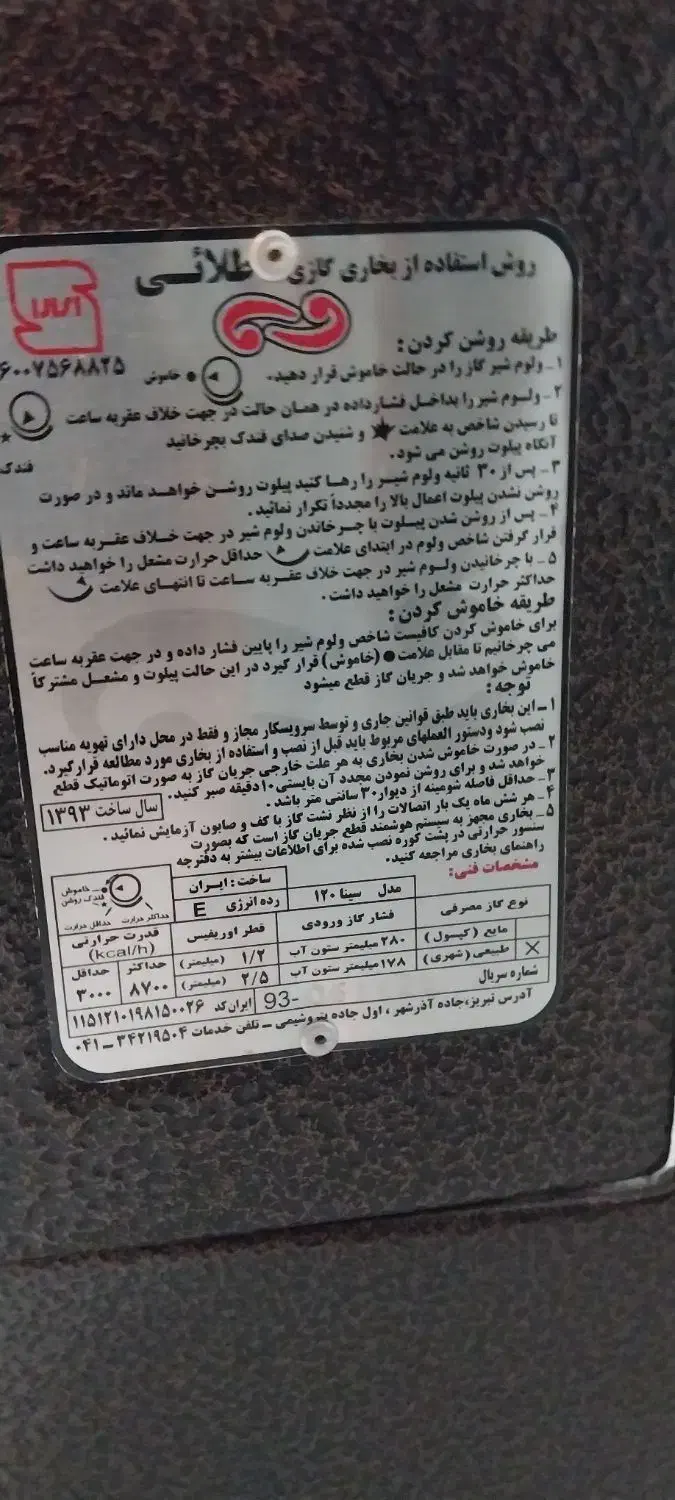 روش استفاده از بخاری گازی طلائی
۶۰۰۷۵۶۸۸۲۵
طریقه روشن کردن :
۱ـ ولوم شیر گاز را در حالت خاموش قرار دهید. ● خاموش
۲ـ ولوم شیر را بداخل فشار داده در همان حالت در جهت خلاف عقربه ساعت
تا رسیدن شاخص به علامت ★ و شنیدن صدای فندک بچرخانید
آنگاه پیلوت روشن می شود.
★ فندک
۳ـ پس از ۳۰ ثانیه ولوم شیر را رها کنید پیلوت روشن خواهد ماند و در صورت
روشن نشدن پیلوت اعمال بالا را مجدداً تکرار نمائید.
۴ـ پس از روشن شدن پیلوت با چرخاندن ولوم شیر در جهت خلاف عقربه ساعت و
قرار گرفتن شاخص ولوم در ابتدای علامت حداقل حرارت مشعل را خواهید داشت
۵ـ با چرخانیدن ولوم شیر در جهت خلاف عقربه ساعت تا انتهای علامت
حداکثر حرارت مشعل را خواهید داشت.
طریقه خاموش کردن :
برای خاموش کردن کافیست شاخص ولوم شیر را پایین فشار داده و در جهت عقربه ساعت
می چرخانیم تا مقابل علامت ● (خاموش) قرار گیرد در این حالت پیلوت و مشعل مشترکاً
خاموش خواهد شد و جریان گاز قطع میشود
توجه :
۱ـ این بخاری باید طبق قوانین جاری و توسط سرویسکار مجاز و فقط در محل دارای تهویه مناسب
نصب شود ودستور العملهای مربوط باید قبل از نصب و استفاده از بخاری مورد مطالعه قرار گیرد.
۲ـ در صورت خاموش شدن بخاری به هر علت خارجی جریان گاز به صورت اتوماتیک قطع
خواهد شد و برای روشن نمودن مجدد آن بایستی ۱۰ دقیقه صبر کنید.
۳ـ حداقل فاصله شومینه از دیوار ۳۰ سانتی متر باشد.
۴ـ هر شش ماه یک بار اتصالات را از نظر نشت گاز با کف و صابون آزمایش نمائید.
سال ساخت ۱۳۹۳
۵ـ بخاری مجهز به سیستم هوشمند قطع جریان گاز است که بصورت
سنسور حرارتی در پشت کوره نصب شده برای اطلاعات بیشتر به دفترچه
راهنمای بخاری مراجعه کنید.
مشخصات فنی:
مدل سینا ۱۲۰
ساخت : ایران
رده انرژی E
خاموش
فندک روشن
حداکثر حرارت حداقل حرارت
نوع گاز مصرفی فشار گاز ورودی قطر اوریفیس قدرت حرارتی (kcal/h)
حداکثر حداقل
مایع (کپسول) ۲۸۰ میلیمتر ستون آب ۱/۲ (میلیمتر)
X طبیعی (شهری) ۱۷۸ میلیمتر ستون آب ۲/۵ (میلیمتر) ۸۷۰۰ ۳۰۰۰
شماره سریال 93- ایران کد ۱۱۵۱۲۱۰۱۹۸۱۵۰۰۲۶
آدرس تبریز،جاده آذرشهر ، اول جاده پتروشیمی ـ تلفن خدمات ۳۴۲۱۹۵۰۴ ـ ۰۴۱